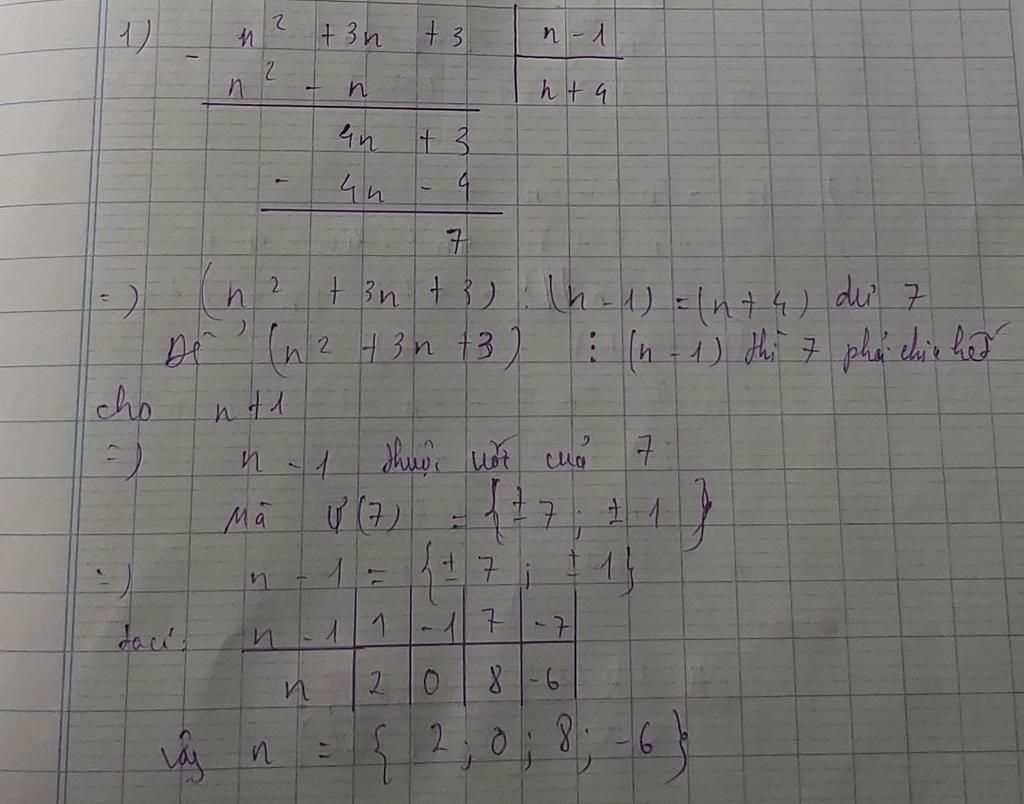 1) - n² + 3n + 3 | n - 1
n² - n | n + 4
4n + 3
- 4n - 4
7
=) (n² + 3n + 3) : (n - 1) = (n + 4) dư 7
Để (n² + 3n + 3) ⋮ (n - 1) thì 7 phải chia hết
cho n + 1
=) n - 1 thuộc ước của 7
Mà Ư(7) = {± 7 ; ± 1}
=) n - 1 = {± 7 ; ± 1}
ta có: n - 1 | 1 | -1 | 7 | -7
n | 2 | 0 | 8 | -6
Vậy n = {2 ; 0 ; 8 ; -6}